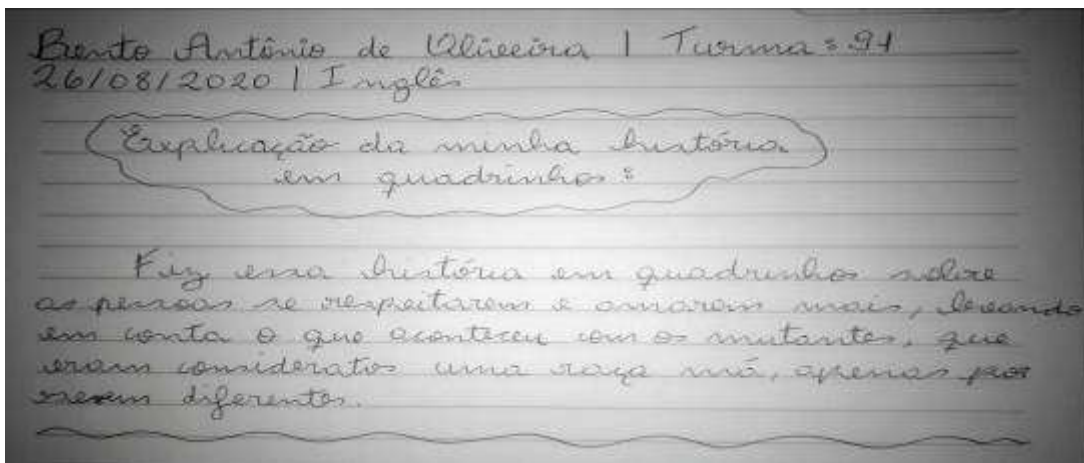 Bento Antônio de Oliveira | Turma: 91
26/08/2020 | Inglês
Explicação da minha história
em quadrinhos:
Fiz essa história em quadrinhos sobre
as pessoas se respeitarem e amarem mais, levando
em conta o que aconteceu com os mutantes, que
eram consideratos uma raça má, apenas por
serem diferentes.